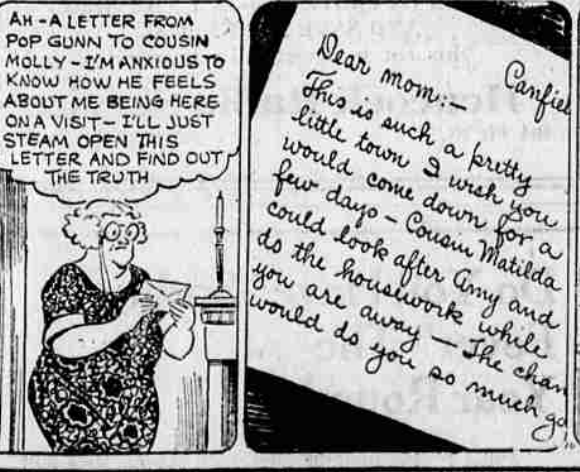 AH - A LETTER FROM
POP GUNN TO COUSIN
MOLLY - I'M ANXIOUS TO
KNOW HOW HE FEELS
ABOUT ME BEING HERE
ON A VISIT - I'LL JUST
STEAM OPEN THIS
LETTER AND FIND OUT
THE TRUTH
Canfiel
Dear mom:-
This is such a pretty
little town I wish you
would come down for a
few days - Cousin Matilda
could look after Amy and
do the housework while
you are away - The chan
would do you so much go